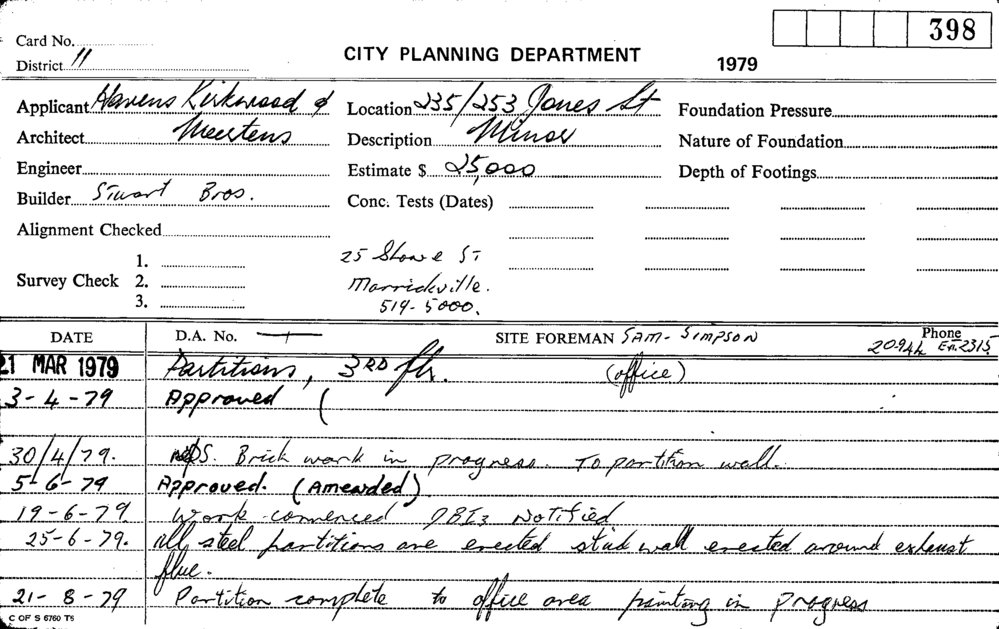 398
Card No.
District 11
CITY PLANNING DEPARTMENT
1979
Applicant Havens Kirkwood &
Location 235/253 Jones St
Foundation Pressure
Architect Meertens
Description Minor
Nature of Foundation
Engineer
Estimate $ 25,000
Depth of Footings
Builder Stuart Bros.
Conc. Tests (Dates)
Alignment Checked
Survey Check 1.
2.
3.
25 Showe St
Marrickville.
519-5000.
DATE
D.A. No.
SITE FOREMAN SAM-SIMPSON
Phone
20944 Ext. 2315
21 MAR 1979 Partitions, 3RD flr. (office)
3-4-79 Approved (
30/4/79. Brick work in progress. To partition wall.
5-6-79 Approved. (Amended)
19-6-79 Work commenced DBI3 Notified
25-6-79. all steel partitions are erected stud wall erected around exhaust
flue.
21-8-79 Partition complete to office area painting in progress
C OF S 6760 T5